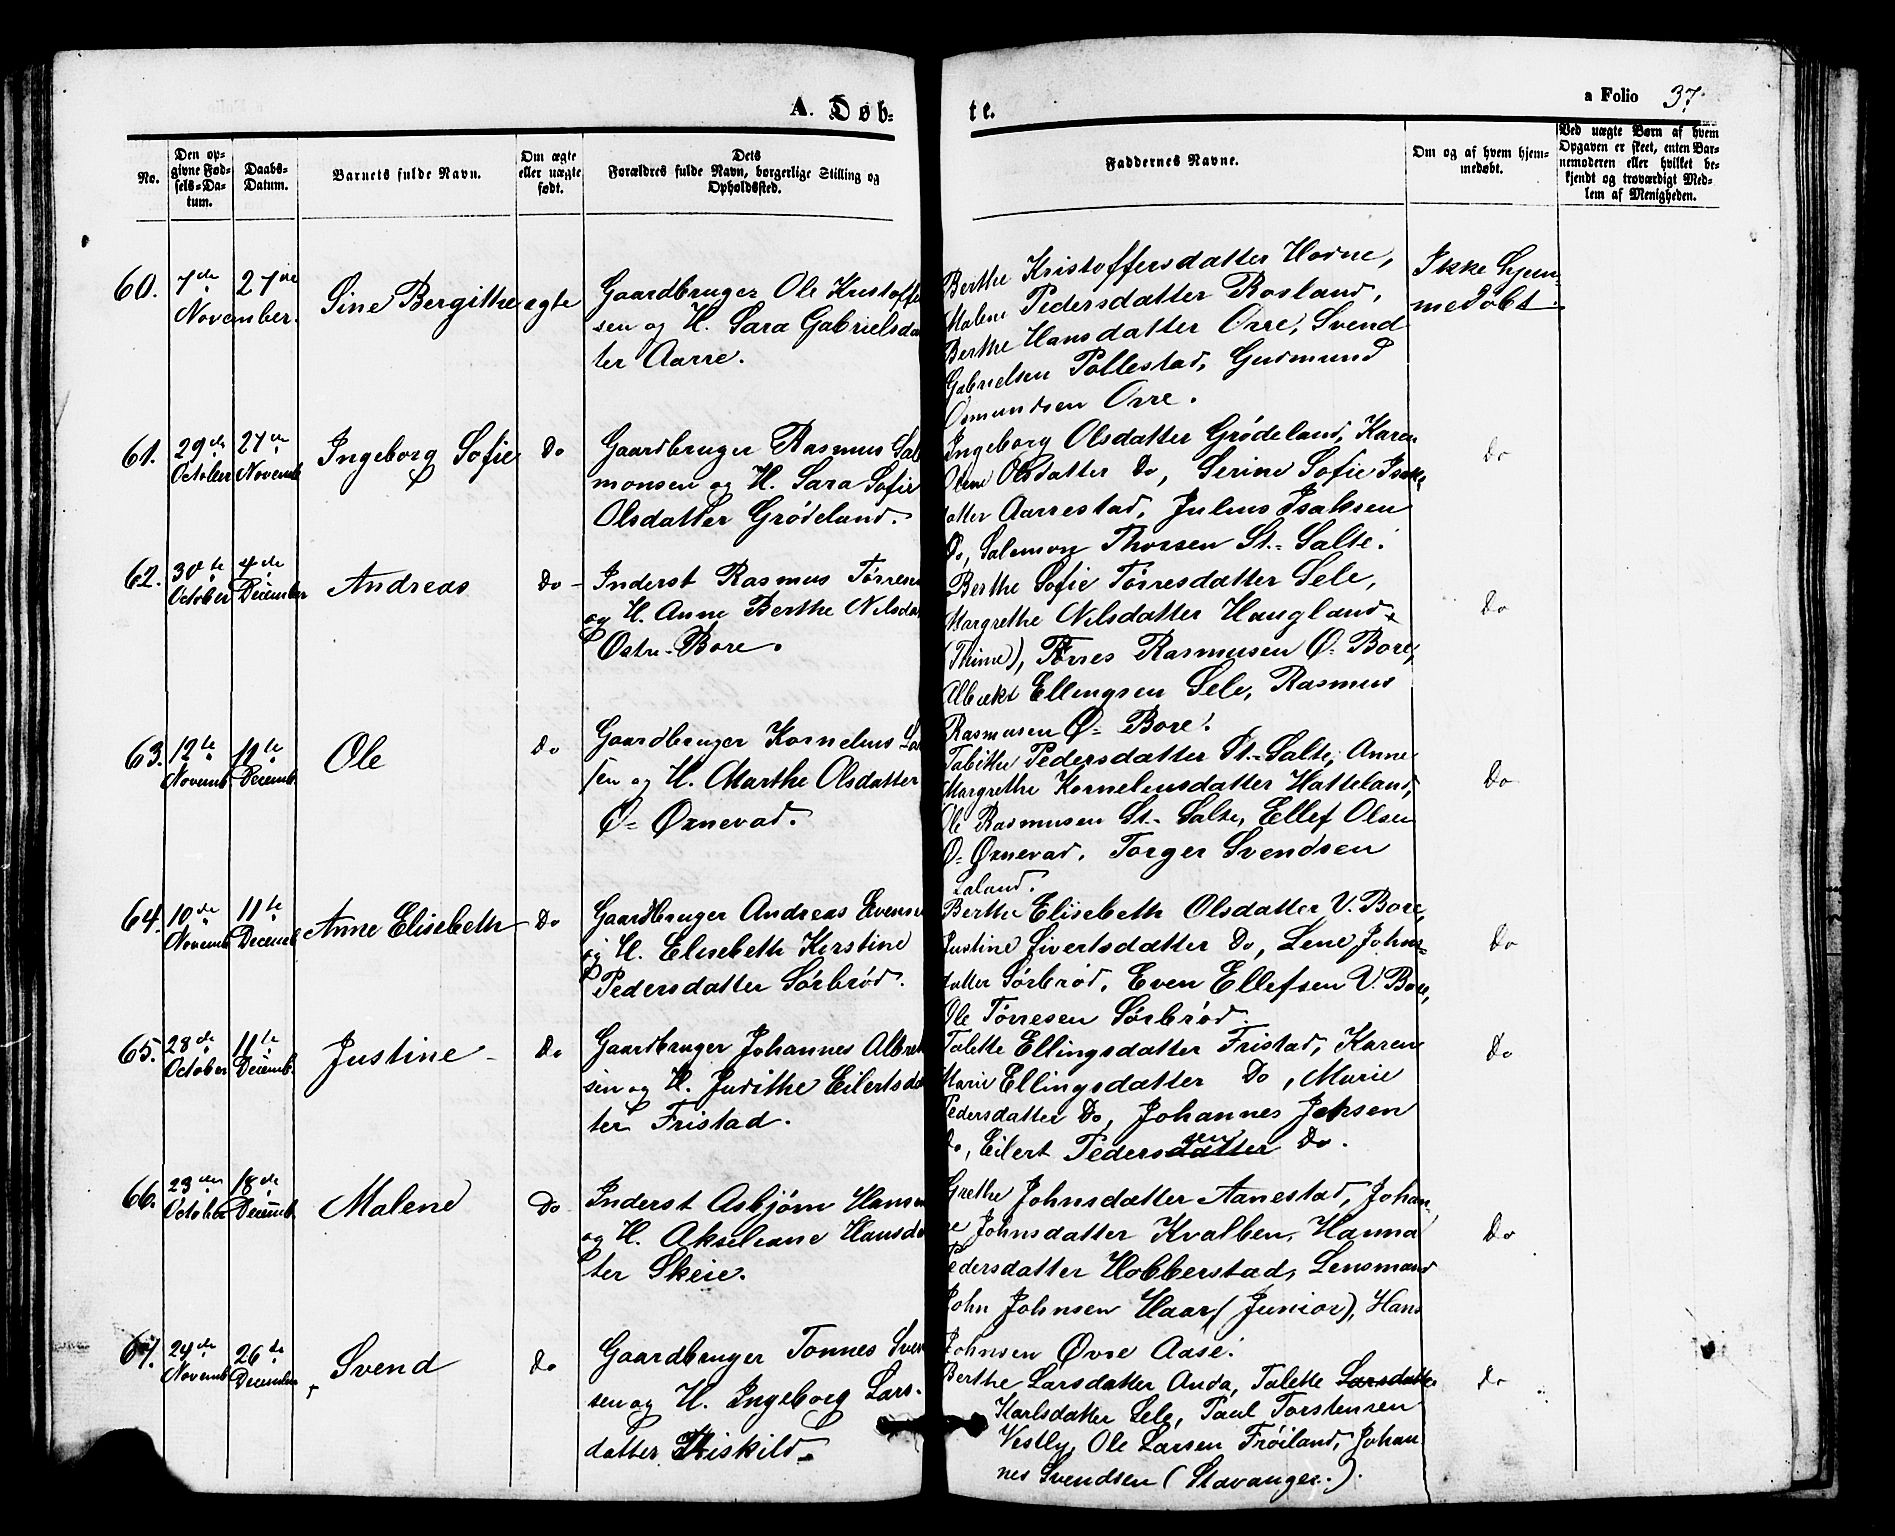 A. Døb-
te.
a Folio 37.
No.
Den op-
givne Fød-
sels-Da-
tum.
Daabs-
Datum.
Barnets fulde Navn.
Om ægte
eller uægte
født.
Dets
Forældres fulde Navn, borgerlige Stilling og
Opholdssted.
Faddernes Navne.
Om og af hvem hjem-
medøbt.
Ved uægte Børn af hvem
Opgaven er skeet, enten Bar-
nemoderen eller hvilket be-
kjendt og troværdigt Med-
lem af Menigheden.
60. 7de 27de
November.
Sine Bergithe
egte
Gaardbruger Ole Kristoffer
sen og H. Sara Gabrielsdat
ter Aarre.
Berthe Kristoffersdatter Horne,
Malene Pedersdatter Rosland,
Berthe Hansdatter Orre, Svend
Gabrielsen Pollestad, Gudmund
Osmundsen Orre.
Ikke hjem-
medøbt.
61. 29de 27de
October Novemb.
Ingeborg Sofie
Do
Gaardbruger Rasmus Sal
monsen og H. Sara Sofie
Olsdatter Grødeland.
Ingeborg Olsdatter Grødeland, Karen
Oline Olsdatter Do, Serine Sofie Isaks
datter Aarrestad, Julius Isaksen
Do, Salomon Thorsen St.- Salte.
Do
62. 30te 4de
October December
Andreas
Do -
Inderst Rasmus Tørresen
og H. Anne Berthe Nilsdat
Østre-Bore.
Berthe Sofie Tørresdatter Sele,
Margrethe Nilsdatter Haugland
(Thime), Tørres Rasmusen Ø- Bore,
Albækt Ellingsen Sele, Rasmus
Rasmusen Ø- Bore.
Do
63. 12te 11te
Novemb. Decemb.
Ole
Do
Gaardbruger Kornelius La
sen og H. Marthe Olsdatter
Ø- Øxnevad.
Tabithe Pedersdatter St.-Salte, Anne
Margrethe Korneliusdatter Hatteland,
Ole Rasmusen St.- Salte, Ellef Olsen
Ø- Øxnevad, Torger Svendsen
Laland.
Do
64. 10de 11te
Novemb. Decemb.
Anne Elisebeth
Do
Gaardbruger Andreas Evensen
og H. Elisebeth Kirstine
Pedersdatter Sørbrød.
Berthe Elisebeth Olsdatter V. Bore,
Justine Sivertsdatter Do, Lene Johns-
datter Sørbrød, Even Ellefsen V. Bore,
Ole Tørresen Sørbrød.
Do
65. 28de 11te
October Decemb.
Justine -
Do
Gaardbruger Johannes Albret
sen og H. Judithe Eilertsdat
ter Fristad.
Talette Ellingsdatter Fristad, Karen
Marie Ellingsdatter Do, Marie
Pedersdatter Do, Johannes Jensen
Do, Eilert Pedersdattersen Do.
Do
66. 23de 18de
October Decemb.
Malene
Do
Inderst Asbjørn Hansen
og H. Akseliane Hansdat
ter Skeie.
Grethe Johnsdatter Aanestad, Johan-
ne Johnsdatter Kvalben, Hanna
Pedersdatter Hobberstad, Lensmand
John Johnsen Haar (Junior), Hans
Johnsen Øvre Aase.
Do
67. 24de 26de
Novemb. December
Svend
Do
Gaardbruger Tønnes Svend
sen og H. Ingeborg Lars-
datter Riskild.
Berthe Larsdatter Anda, Talette Larsdatter
Karlsdatter Sele, Paul Torstensen
Vestly, Ole Larsen Frøiland, Johan
nes Svendsen (Stavanger.).
Do